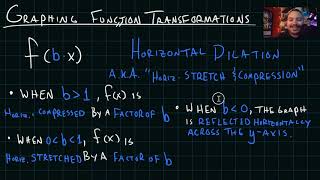 GRAPHING FUNCTION TRANSFORMATIONS
f(b·x)
HORIZONTAL DILATION
A.K.A. "HORIZ. STRETCH & COMPRESSION"
• WHEN b>1, f(x) IS
HORIZ. COMPRESSED BY A FACTOR OF b
• WHEN 0<b<1, f(x) IS
HORIZ. STRETCHED BY A FACTOR OF b
• WHEN b<0, THE GRAPH
IS REFLECTED HORIZONTALLY
ACROSS THE y-AXIS.